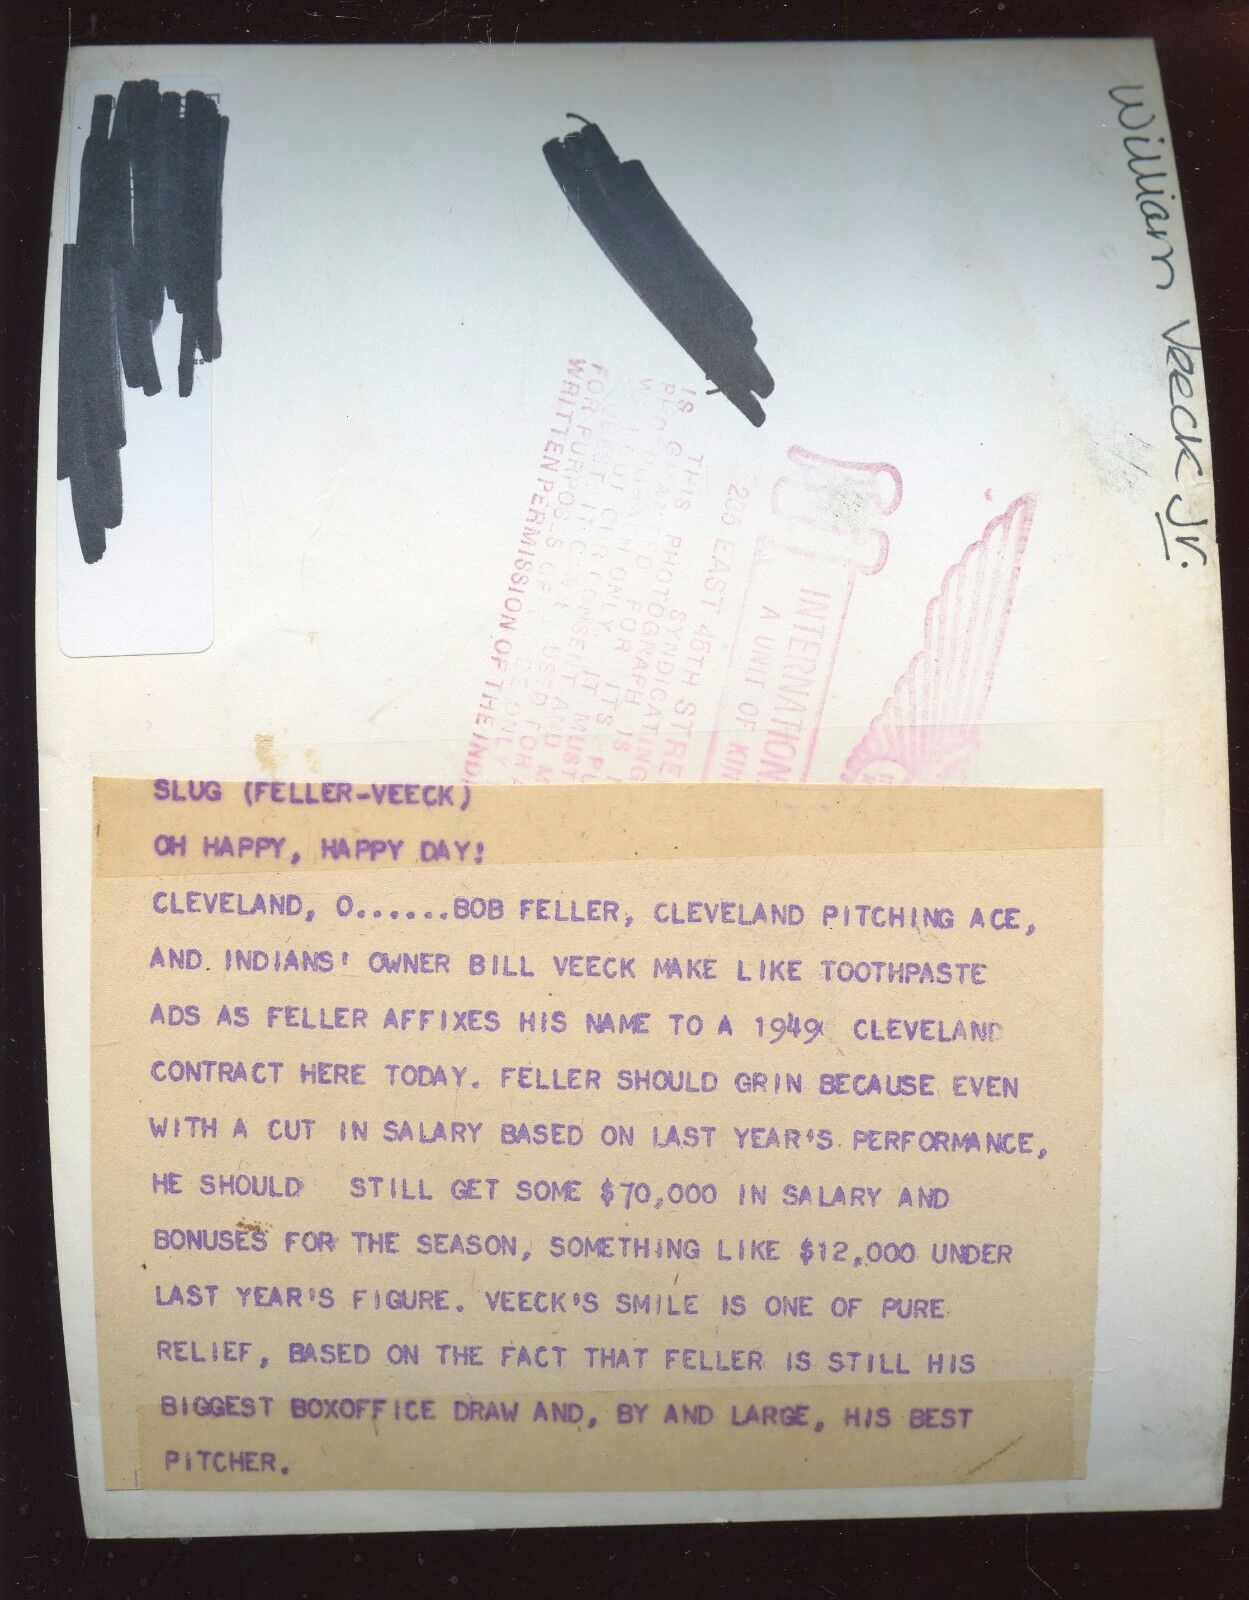 William Veeck Jr.
INTERNATION
A UNIT OF KIN
235 EAST 45TH STRE
THIS PHOTO SYNDICATING
IS GRANTED FOR
WRITTEN PERMISSION OF THE IND
SLUG (FELLER-VEECK)
OH HAPPY, HAPPY DAY!
CLEVELAND, O......BOB FELLER, CLEVELAND PITCHING ACE,
AND INDIANS' OWNER BILL VEECK MAKE LIKE TOOTHPASTE
ADS AS FELLER AFFIXES HIS NAME TO A 1949 CLEVELAND
CONTRACT HERE TODAY. FELLER SHOULD GRIN BECAUSE EVEN
WITH A CUT IN SALARY BASED ON LAST YEAR'S PERFORMANCE,
HE SHOULD STILL GET SOME $70,000 IN SALARY AND
BONUSES FOR THE SEASON, SOMETHING LIKE $12,000 UNDER
LAST YEAR'S FIGURE. VEECK'S SMILE IS ONE OF PURE
RELIEF, BASED ON THE FACT THAT FELLER IS STILL HIS
BIGGEST BOXOFFICE DRAW AND, BY AND LARGE, HIS BEST
PITCHER.